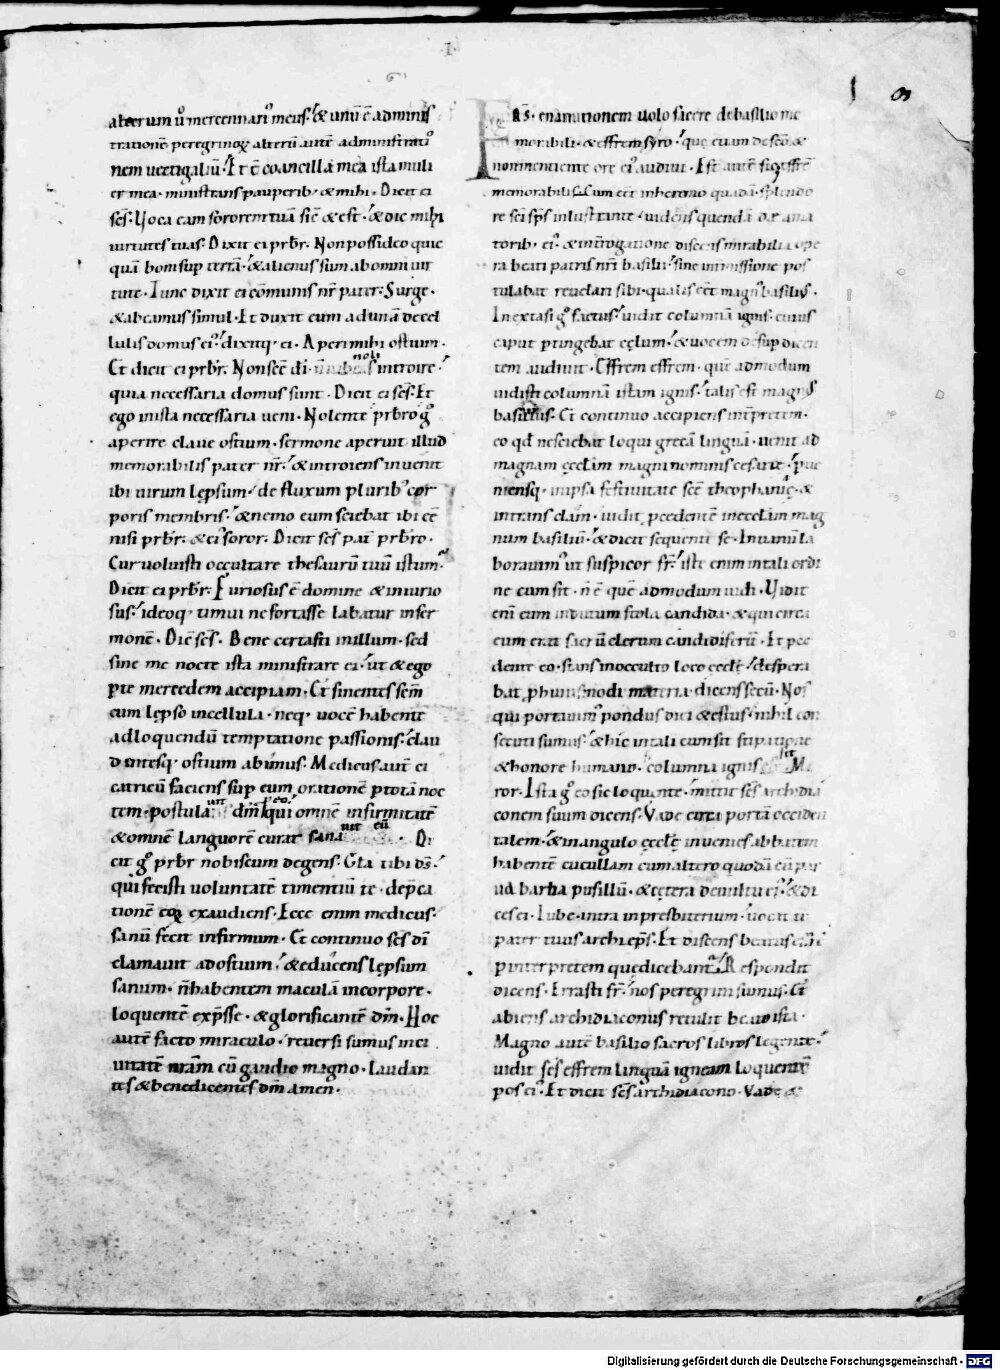 alterum ů mercennariꝰ meus. & unū ē adminis
trationē peregrinoꝝ alterū autē administratiͦ
nem uectigaliū. Et ē coancilla mea ista muli
er mea. ministrans pauperib; & mihi. Dicit ei
scs. Uoca eam sororem tuā sic & est. & dic mihi
uirtutes tuas. Dixit ei prbr. Non possideo quic
quā boni sup terrā. & alienus sum ab omni uir
tute. Tunc dixit ei cōmunis nr pater. Surge.
& abeamus simul. Et duxit eum ad unā de cel
lulis domus eiꝰ. dixitq; ei. Aperi mihi ostium.
Et dicit ei prbr. Non sce di. noli introire.
quia necessaria domus sunt. Dicit ei scs. Et
ego in ista necessaria ueni. Nolente prbro g̊
aperire claue ostium. sermone aperuit illud
memorabilis pater nr. & introiens inuenit
ibi uirum lępsum. defluxum pluribꝰ cor
poris membris. & nemo eum sciebat ibi eē
nisi prbr. & eiꝰ soror. Dicit scs pat prbro.
Cur uoluisti occultare thesaurū tuū istum.
Dicit ei prbr. Furiosus ē domine & iniurio
sus. ideoq; timui ne fortasse labatur in ser
monē. Dic scs. Bene certasti in illum. sed
sine me nocte ista ministrare ei. ut & ego
pte mercedem accipiam. Et sinentes scm
cum lępso in cellula. neq; uocē habentē
ad loquendū temptatione passionis. clau
dentesq; ostium abimus. Medicus aut ei
catricū faciens sup eum orationē p totā noc
tem. postula dm qui omnē infirmitatē
& omnē languorē curat sana Di
cit g̊ prbr nobiscum degens. Gla tibi ds.
qui fecisti uoluntatē timentiū te. depca
tionē eoꝝ exaudiens. Ecce enim medicus
sanū fecit infirmum. Et continuo scs di
clamauit ad ostium. & educens lępsum
sanum. n habentem maculā in corpore.
loquentē exp̄sse. & glorificantē dm. Hoc
autē facto miraculo. reuersi sumus in ci
uitatē nram cū gaudio magno. laudan
tes & benedicentes dm amen.
Fas. enarrationem uolo facere de basilio me
morabili. & effrem syro. que etiam de scō &
non mentiente ore eiꝰ audiui. Est autē sic effrē
memorabilis. Cum eēt in heremo quadā splendo
re sci sps inlustrante. uidens quendā de ama
torib; eiꝰ. & interrogatione discens mirabilia ope
ra beati patris nri basilii. sine intmissione pos
tulabat reuelari sibi. qualis eēt magnꝰ basiliꝰ.
In extasi g̊ factus. uidit columnā ignis. cuius
caput ptingebat cęlum. & uocem desup dicen
tem audiuit. Effrem effrem. que admodum
uidisti columnā istam ignis. talis est magnꝰ
basilius. Et continuo accipiens intpretem.
eo qd nesciebat loqui grecā linguā. uenit ad
magnam ęcclam magni nominis cesarie. pue
niensq; in ipsa festiuitate scē theophanię. &
intrans clam. uidit pcedentē in ecclam mag
num basiliū. & dicit sequenti se. In uanū la
borauimꝰ ut suspicor fr. iste enim in tali ordi
ne cum sit. n ē que admodum uidi. Uidit
eni eum indutum stola candida. & qui circa
eum erat sacrū clerum candidiferū. Et pce
dente eo. stans in occulto loco ecclę. despera
bat p huiusmodi materia. dicens secū. Nos
qui portauimꝰ pondus diei & estus. nihil con
secuti sumus. & hic in tali cum sit stipatione
& honore humano. columna ignis sit. Mi
ror. Ista g̊ eo sic loquente. mittit scs archidia
conem suum dicens. Vade circa portā occiden
talem. & in angulo ecclę inuenies abbatem
habentē cucullam cum altero quodā cū par
ua barba pusillū. & cętera de uultu eiꝰ. & di
ces ei. Iube. intra in presbiterium. uocat te
pater tuus archieps. Et discens beatus effrē
p interpretem quę dicebant. Respondit
dicens. Errasti fr. nos peregrini sumus. Et
abiens archidiaconus retulit beato ista.
Magno autē basilio sacros libros legente.
uidit scs effrem linguā igneam loquentē
p os eiꝰ. Et dicit scs archidiacono. Vade &
Digitalisierung gefördert durch die Deutsche Forschungsgemeinschaft - DFG